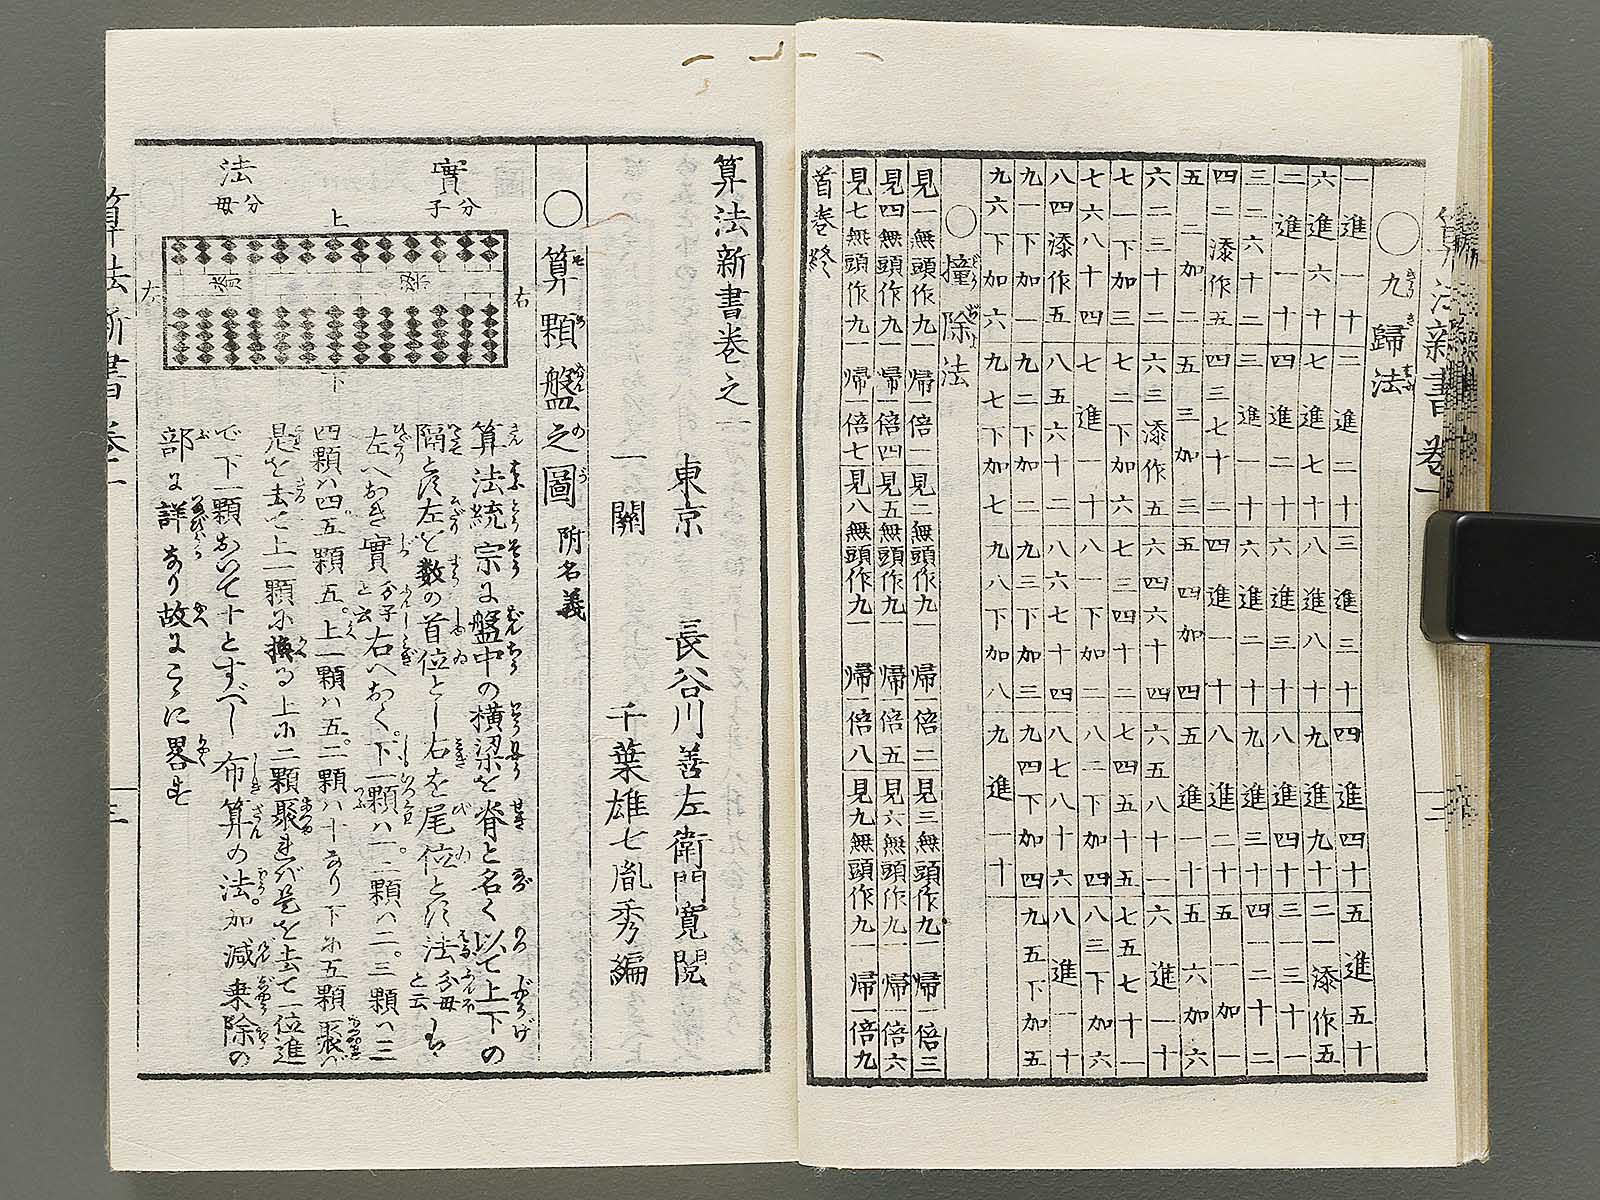 算法新書 卷一
二
○九歸法
一進一十 二進二十 三進三十 四進四十 五進五十
六進六十 七進七十 八進八十 九進九十 二一添作五
二進一十 四進二十 六進三十 八進四十 三一三十一
三二六十二 三進一十 六進二十 九進三十 四一二十二
四二添作五 四三七十二 四進一十 八進二十 五一加一
五二加二 五三加三 五四加四 五進一十 六一加四
六二三十二 六三添作五 六四六十四 六五八十二 六進一十
七一下加三 七二下加六 七三四十二 七四五十五 七五七十一
七六八十四 七進一十 八一下加二 八二下加四 八三下加六
八四添作五 八五六十二 八六七十四 八七八十六 八進一十
九一下加一 九二下加二 九三下加三 九四下加四 九五下加五
九六下加六 九七下加七 九八下加八 九進一十
○撞除法
見一無頭作九一 帰一倍一 見二無頭作九一 帰一倍二 見三無頭作九一 帰一倍三
見四無頭作九一 帰一倍四 見五無頭作九一 帰一倍五 見六無頭作九一 帰一倍六
見七無頭作九一 帰一倍七 見八無頭作九一 帰一倍八 見九無頭作九一 帰一倍九
首卷終
算法新書卷之一
東京 長谷川善左衛門寛閲
一關 千葉雄七胤秀編
○算顆盤之圖 附名義
實 分子
法 分母
上
右
左
下
算法統宗に盤中の横梁を脊と名く以て上下の
隔とし左を数の首位とし右を尾位とし法分母と云をば
左へおき實分子と云右へおく。下一顆ハ一。二顆ハ二。三顆ハ三
四顆ハ四五顆ハ五。上一顆ハ五。二顆ハ十なり下に五顆聚バ
是を去て上一顆に換る上に二顆聚まれバ是を去て一位進
で下一顆おいて十とすべし布算の法。加減乗除の
部に詳なり故にこゝに畧す
算法新書 卷一
三